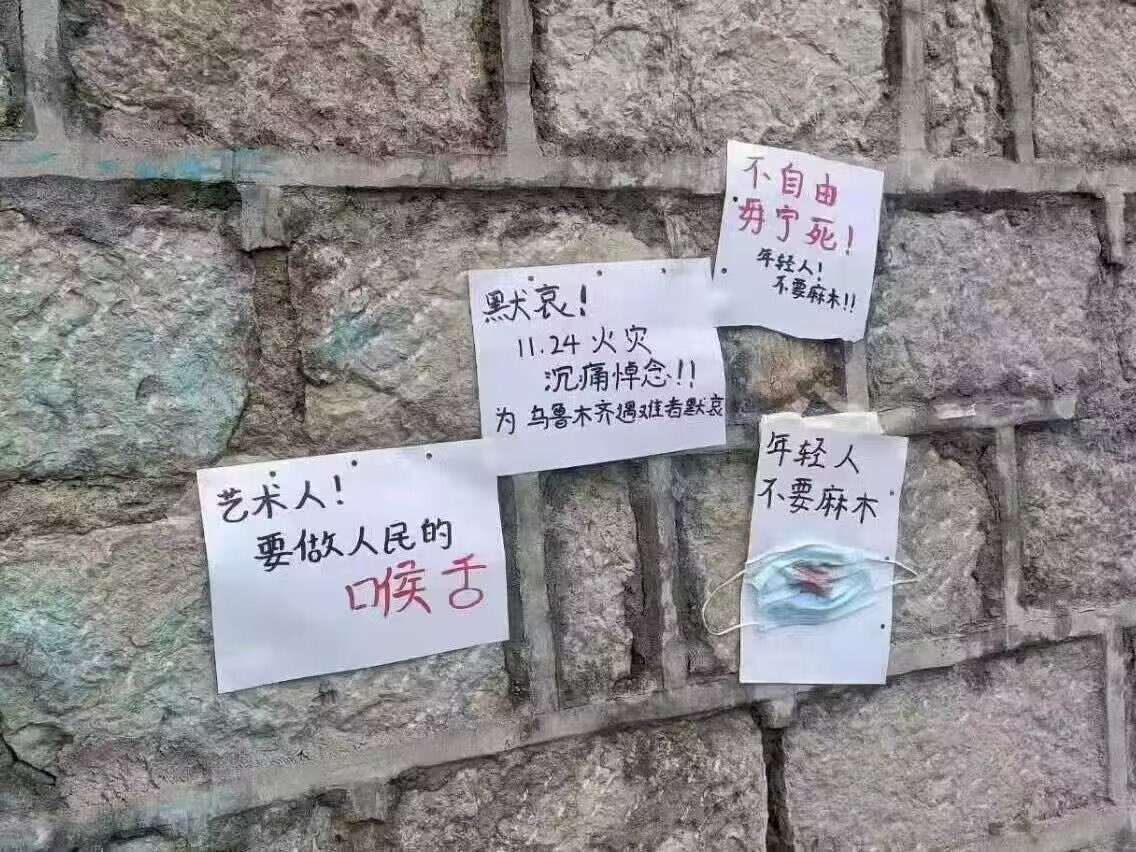 不自由
毋宁死!
年轻人!
不要麻木!!
默哀!
11.24 火灾
沉痛悼念!!
为 乌鲁木齐遇难者默哀
艺术人!
要做人民的
喉舌
年轻人
不要麻木